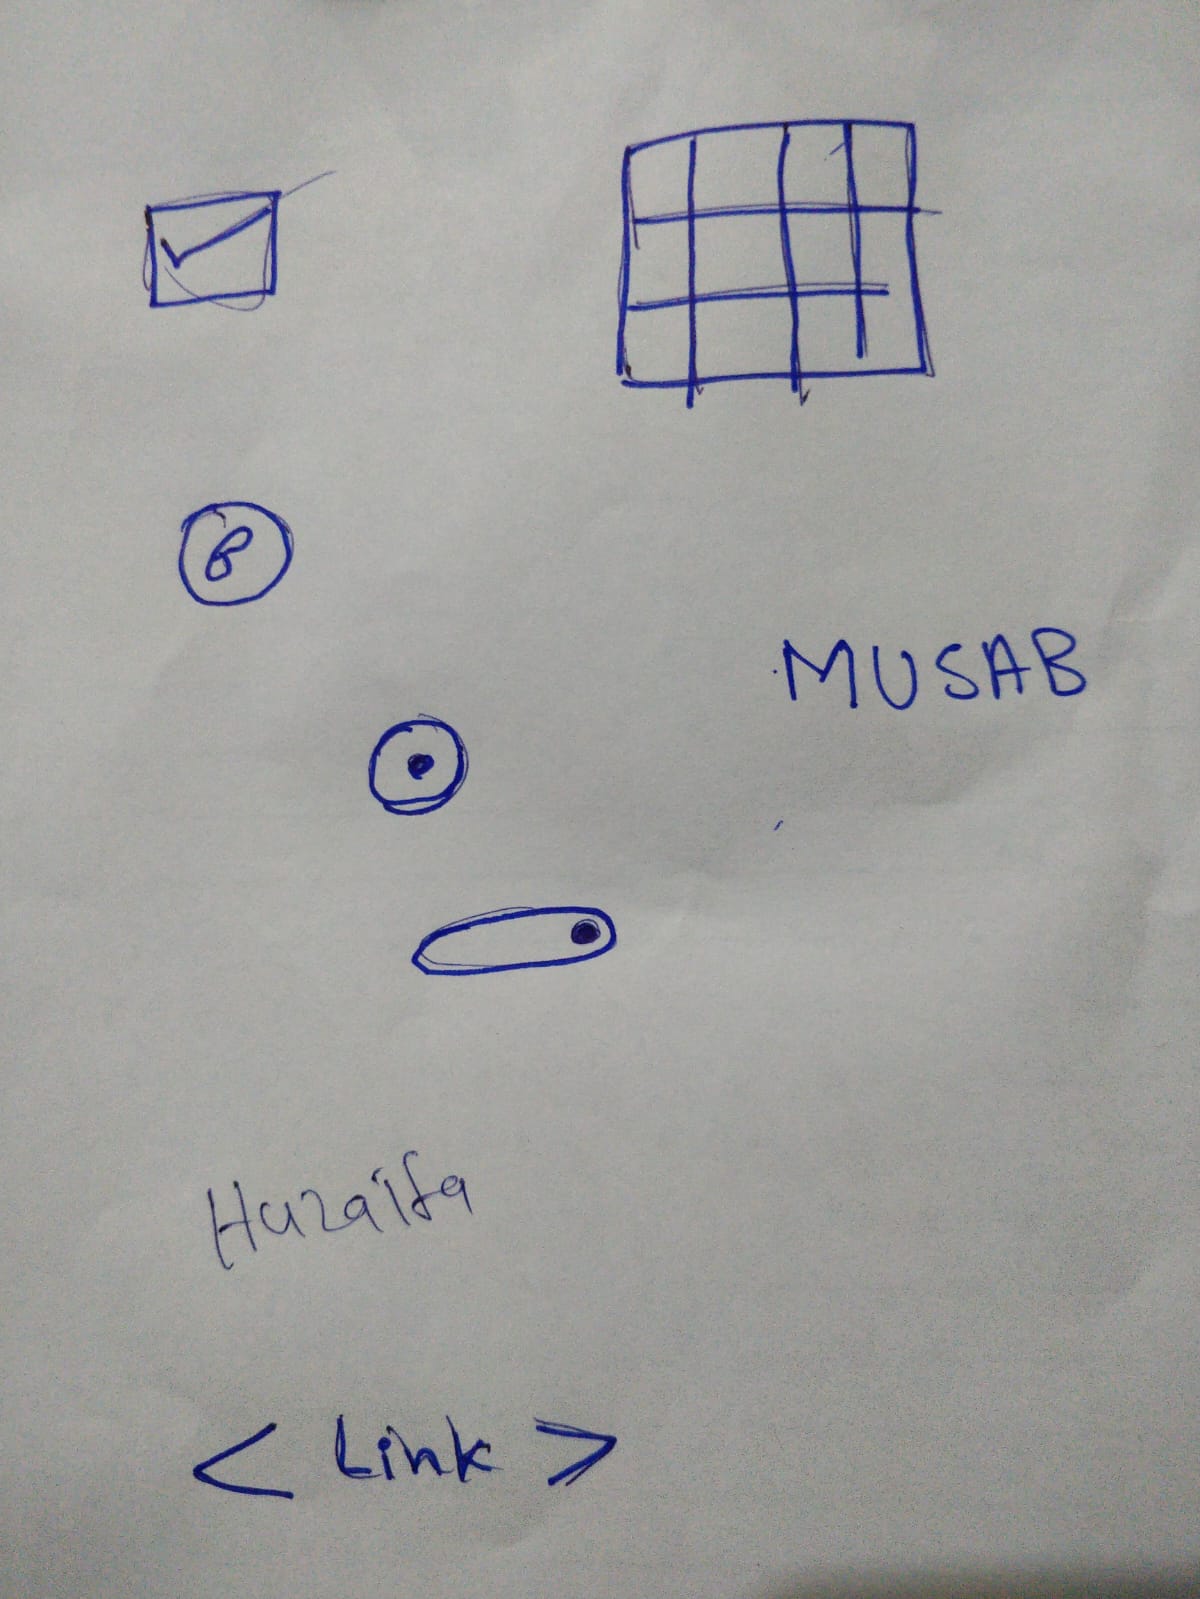 MUSAB
Huzaifa
< Link >